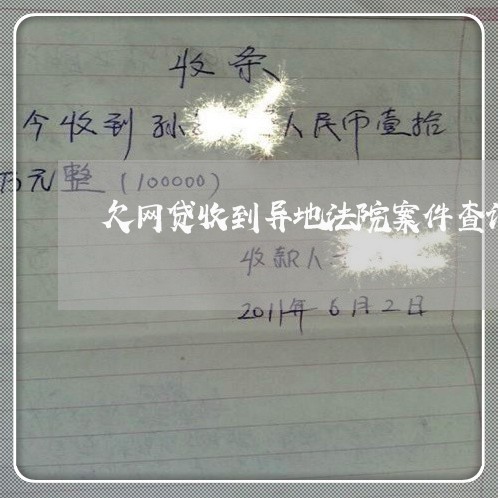 收条
今收到孙人民币壹拾
万元整(100000)
欠网贷收到异地法院案件查
收款人
2011年6月2日